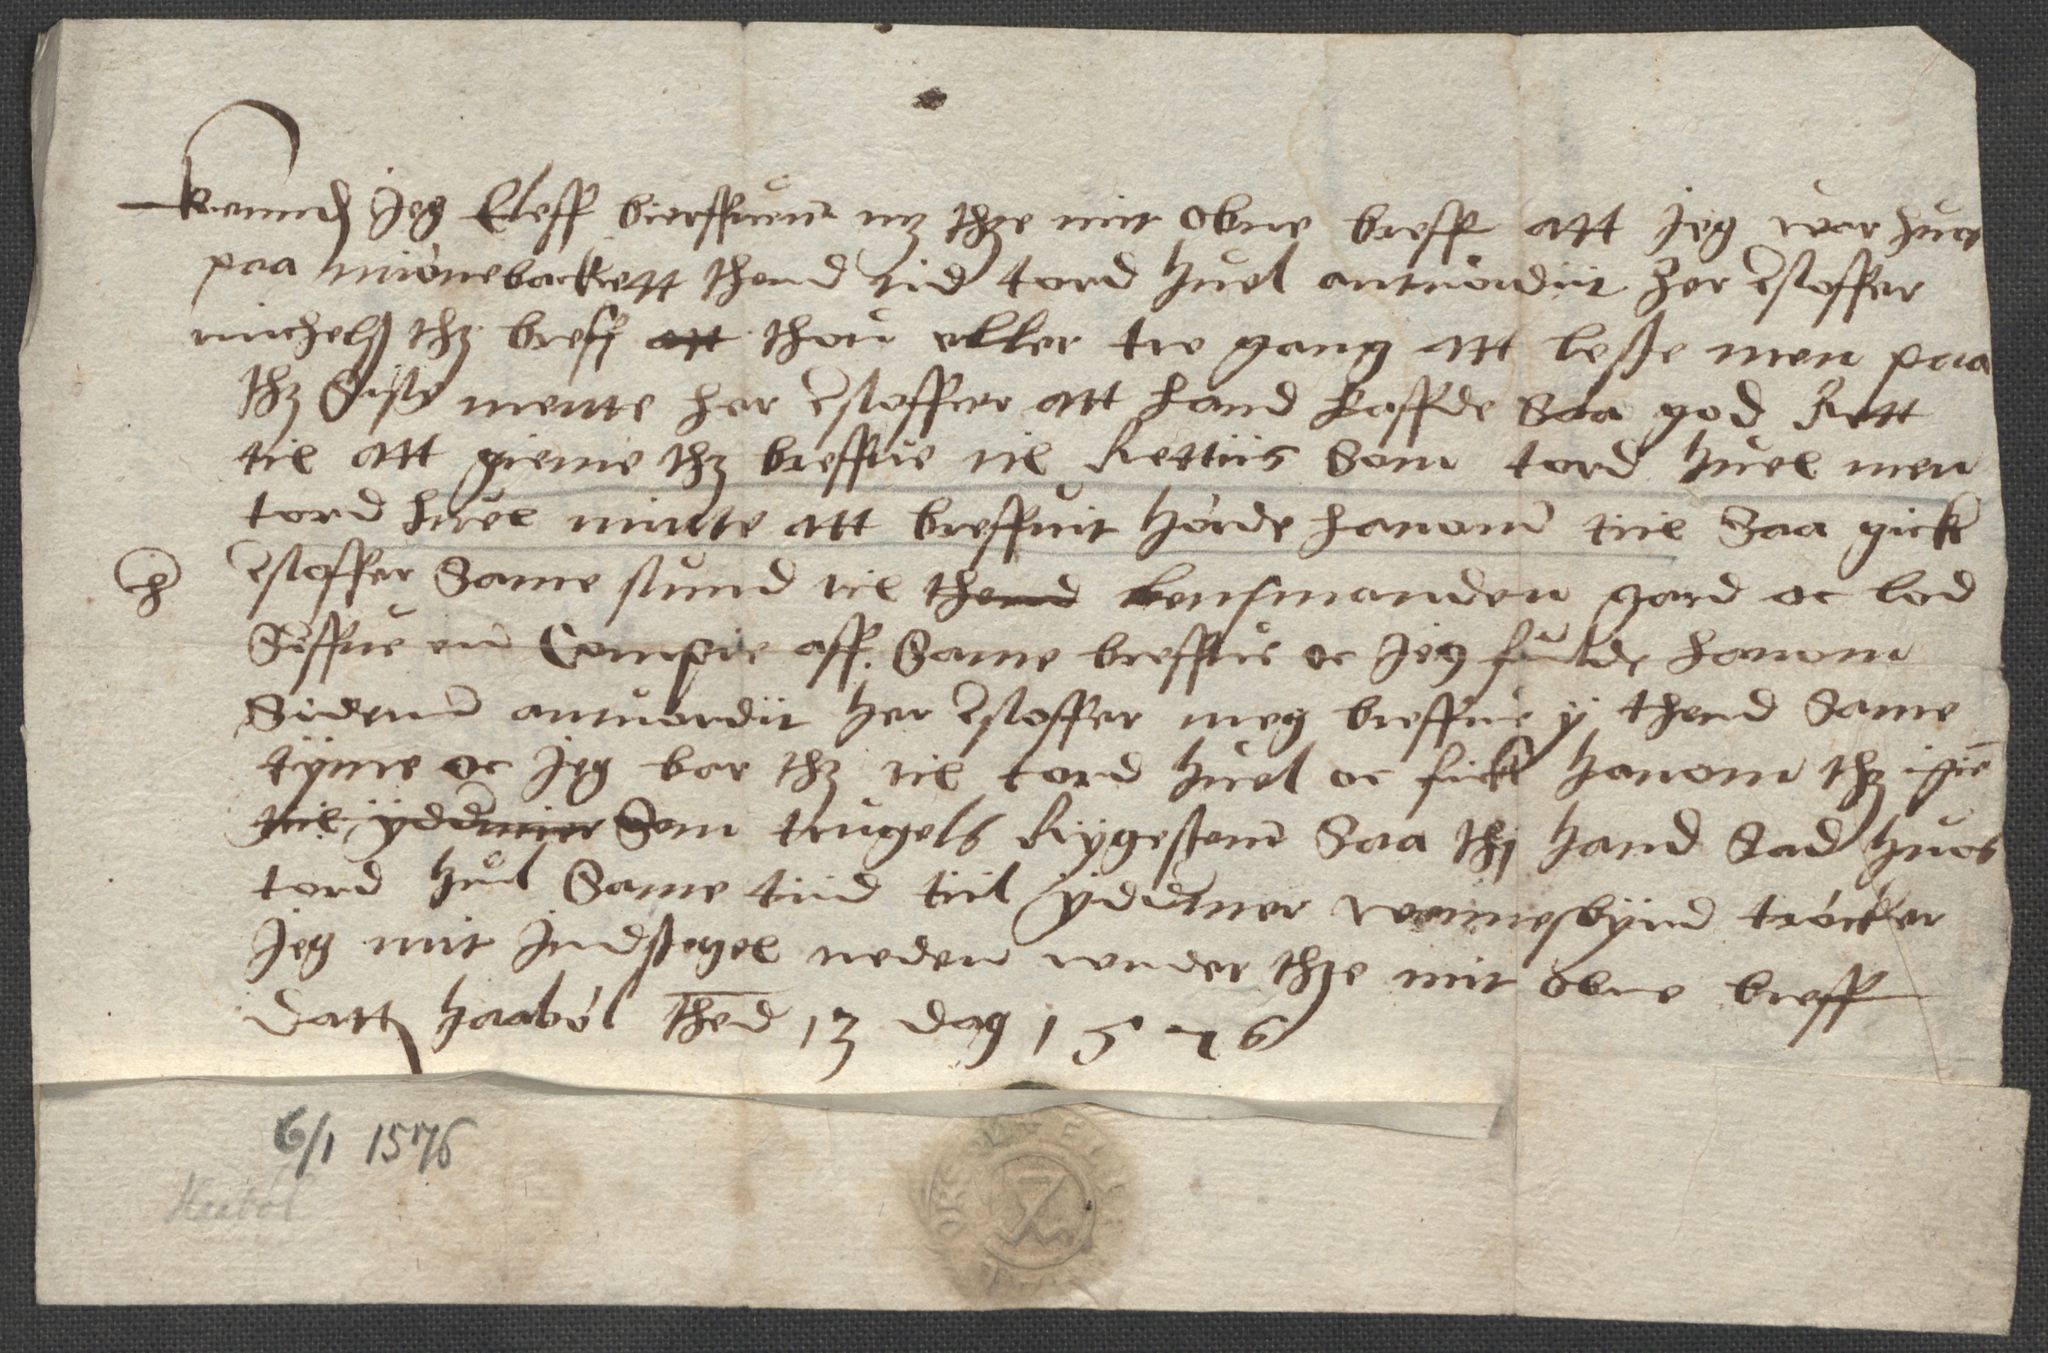 Kennis Jeg Eleff biørssuend mz thze mit obne breff att Jeg var huos
paa miønebackett thend tid tord huel antuordit her Cstoffer
michelss thz breff att thou eller tre gang att lesse men paa
thz Siste mente her Cstoffer att hand haffde Saa god Rett
til att gieme thz breffue til Rettiis Som tord huel men
tord huel miente att breffuit hørde hanom tiil Saa gick
h Cstoffer Same stund til thend lensmanden gard oc lod
Schriffue en Compie aff Same breffue oc Jeg fulde hanom
Sidenn antuordit her Cstoffer meg breffue y thend Same
tyme oc Jeg bar thz til tord huel oc fick hanom thz igie
til yddmer Som trugels Rygesten Saa thj hand Sad huos
tord huel Same tiid tiil ydermer vennesbyrd trøcker
Jeg mit Indsegel neden vnder thze mit obne breff
Datt haabøl thend 13 dag 1576
6/1 1576
Haabøl